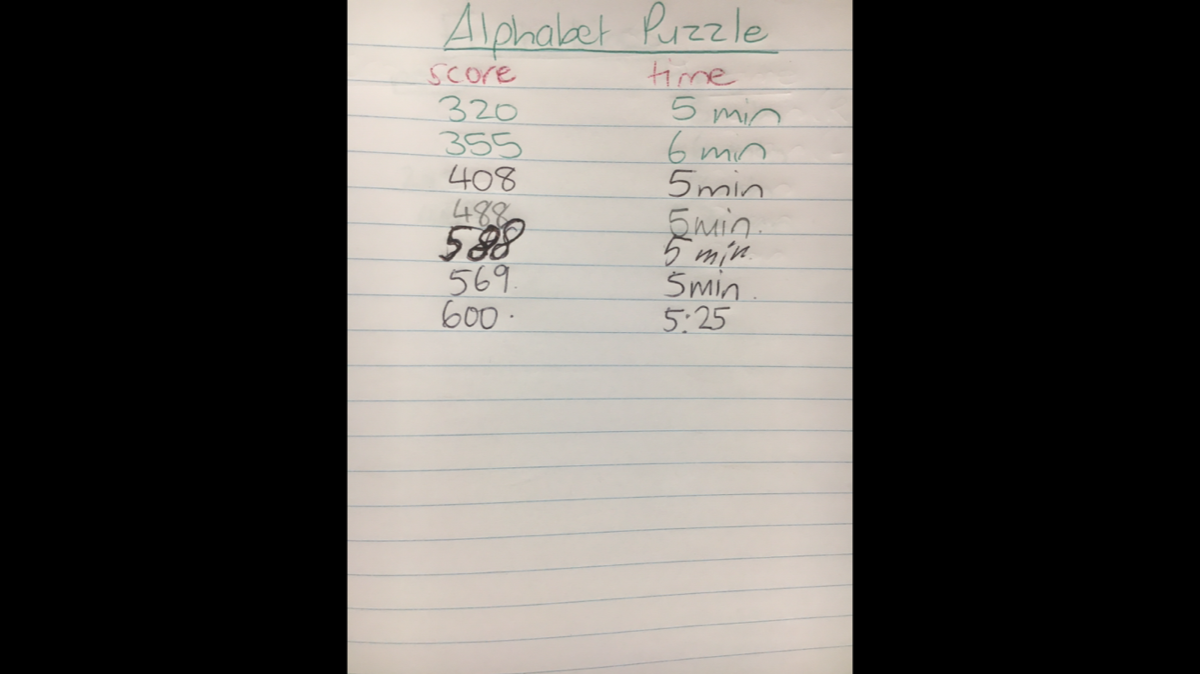 Alphabet Puzzle
score time
320 5 min
355 6 min
408 5min
488 5min.
588 5 min.
569. 5min.
600. 5:25